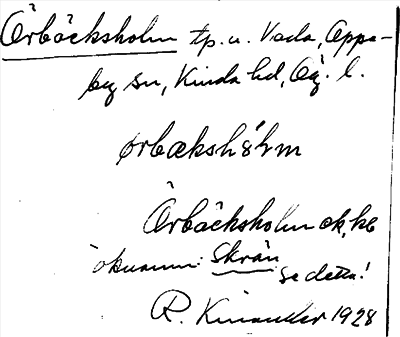 Örbäcksholm tp. u. Vada, Oppe-
by sn, Kinda hd, Ög. l.
ørbæksh8̀lm
Örbäcksholm ek, kb
öknamn: Skrän
se detta!
R. Kinander 1928